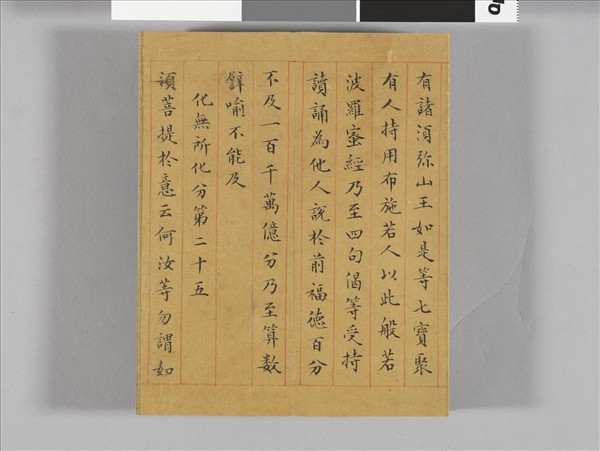 有諸湏弥山王如是等七寶聚
有人持用布施若人以此般若
波羅蜜經乃至四句偈等受持
讀誦為他人說於前福德百分
不及一百千萬億分乃至算数
譬喻不能及
化無所化分第二十五
湏菩提於意云何汝等勿謂如